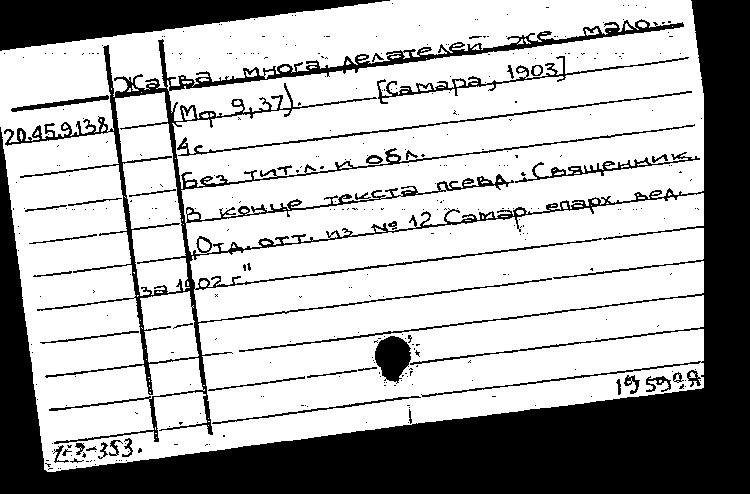 Жатва... многа, делателей же мало...
(Мф. 9,37). [Самара, 1903]
20.45.9.138.
4 с.
Без тит.л. и обл.
В конце текста псевд.: Священник.
„Отд. отт. из № 12 Самар. епарх. вед.
за 1902 г."
-353.